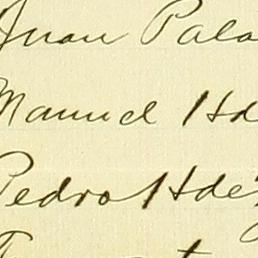 Juan Pala
Manuel Hd
Pedro Hdez